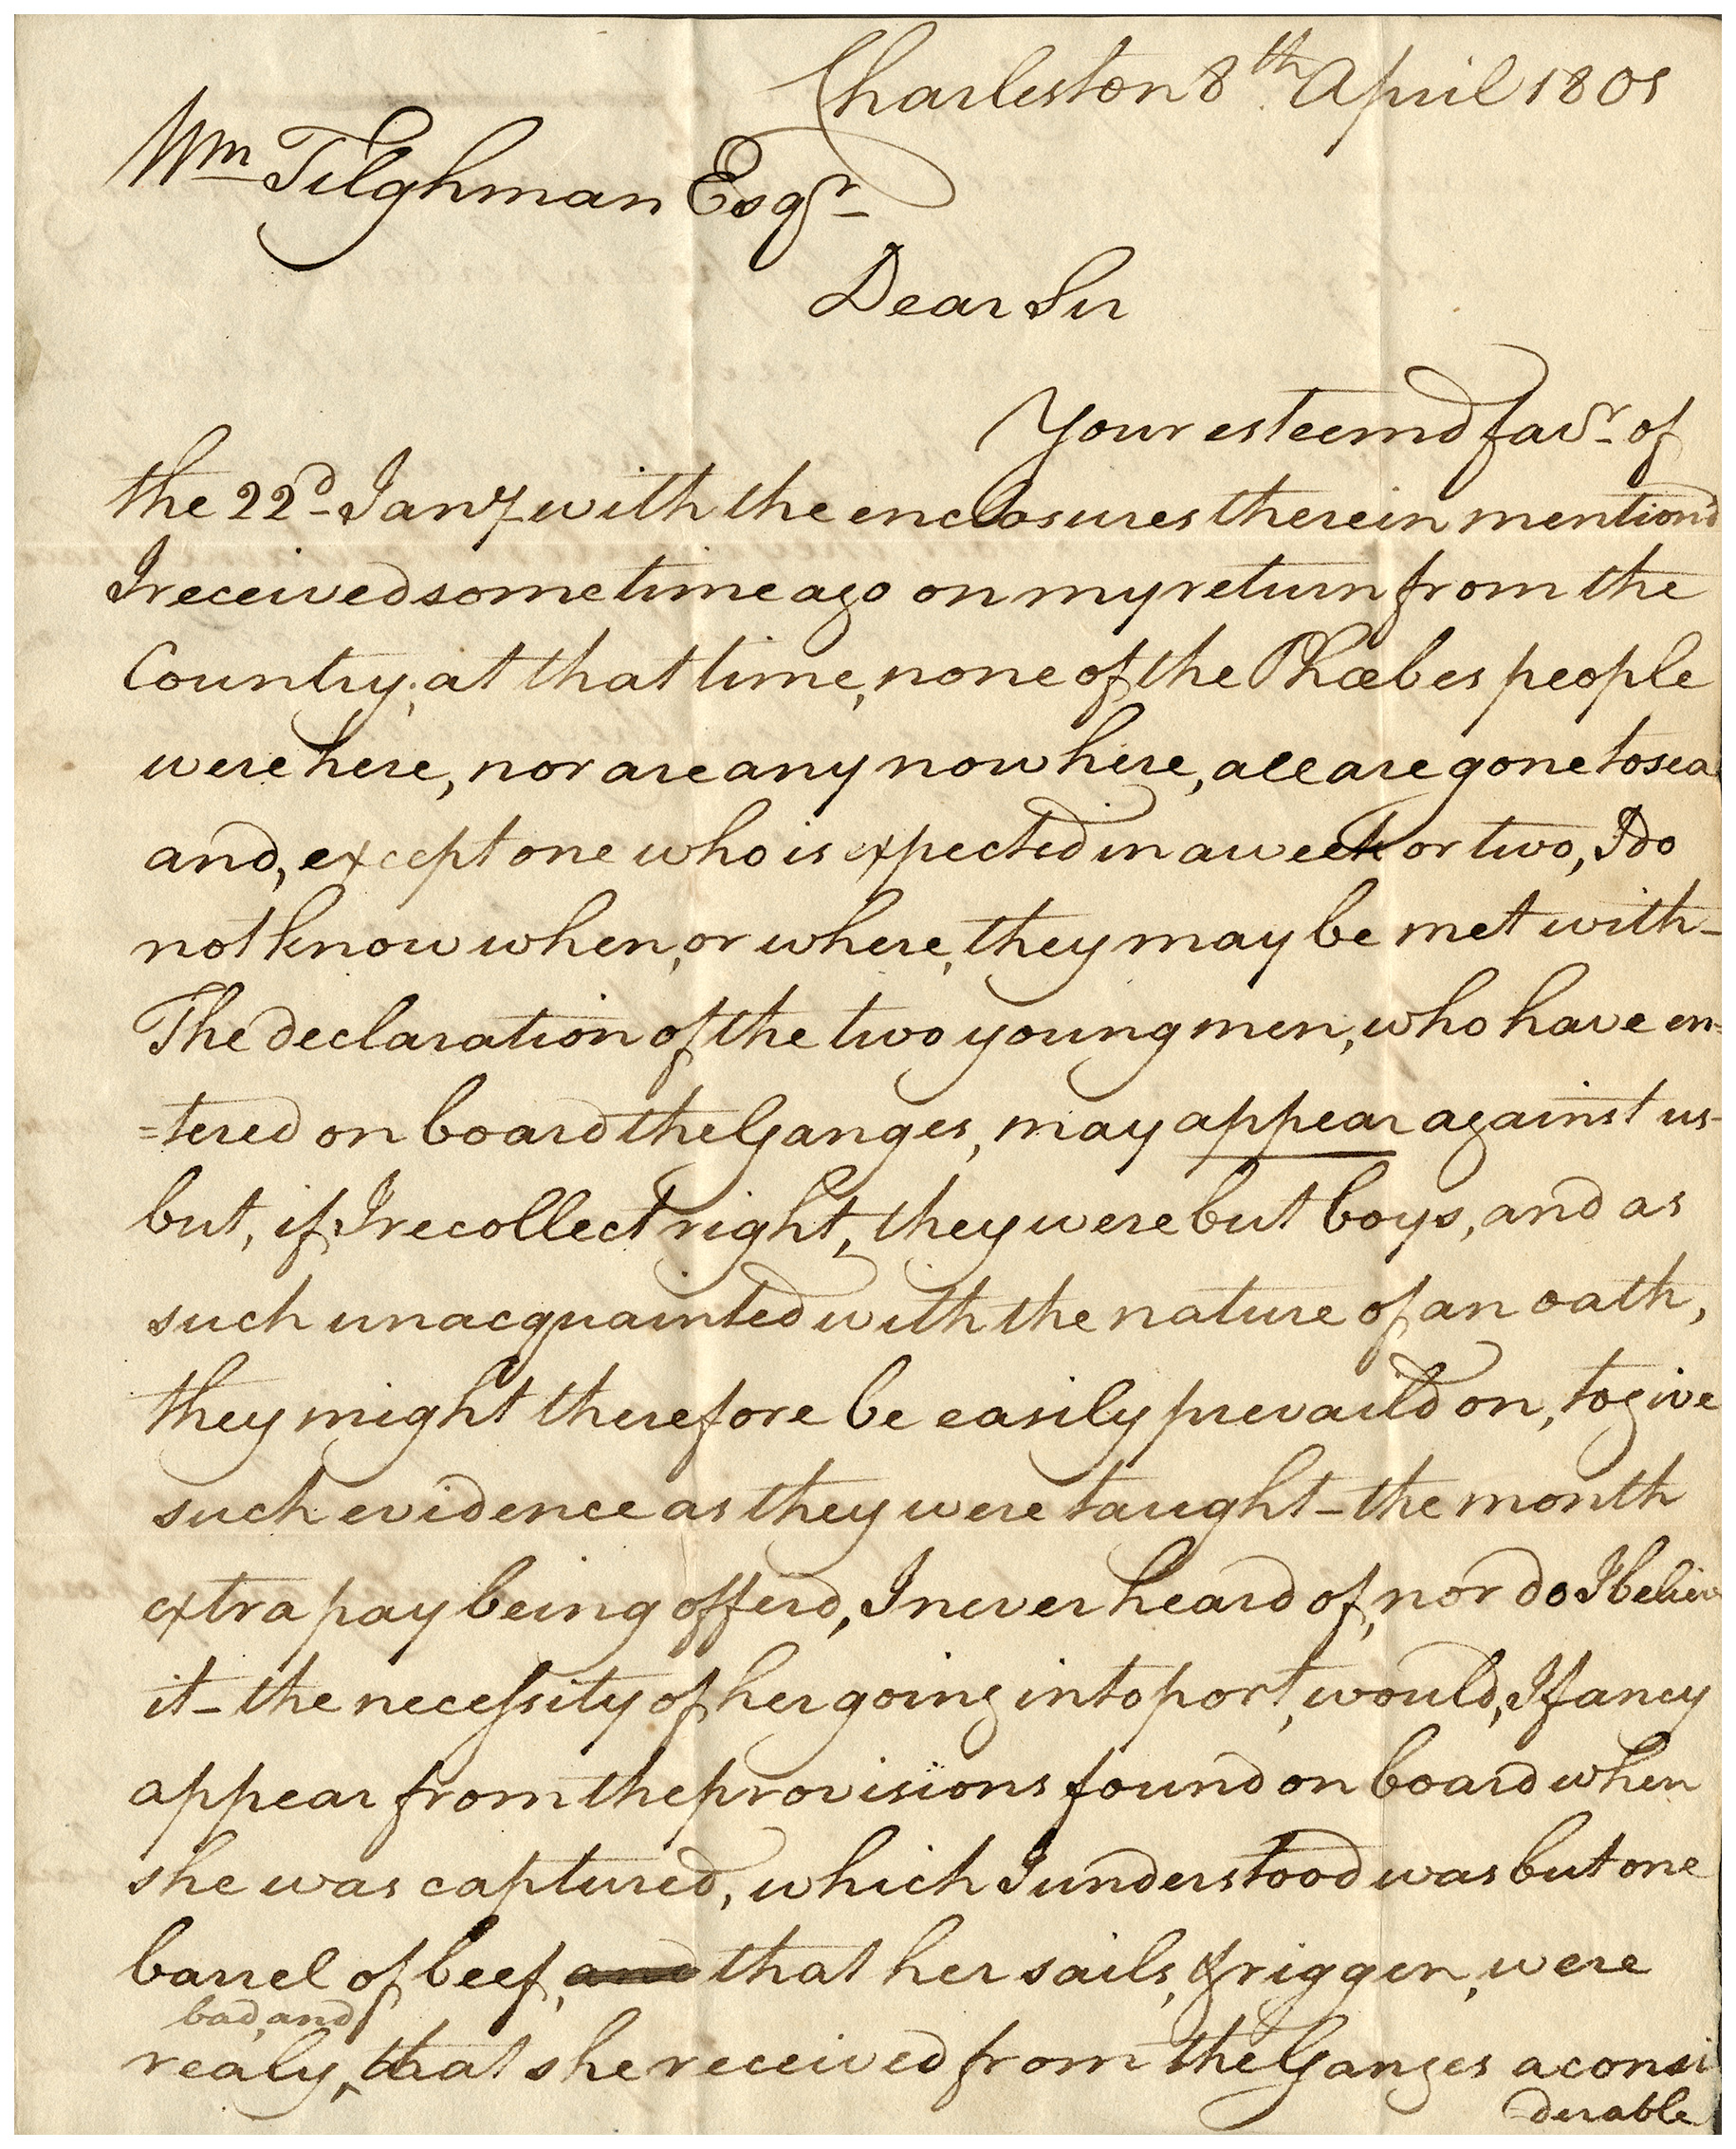 Charleston 8th April 1801
Wm Tilghman Esqr
Dear Sir
Your esteemd favr of
the 22d Jany with the enclosures therein mentiond
I received sometime ago on my return from the
Country; at that time, none of the Phœbes people
were here, nor are any now here, all are gone to sea
and, except one who is expected in a week or two, I do
not know when, or where, they may be met with -
The declaration of the two young men, who have en=
=tered on board the Ganges, may appear against us -
but, if I recollect right, they were but boys, and as
such unacquainted with the nature of an oath,
they might therefore be easily prevaild on, to give
such evidence as they were taught - the month
extra pay being offerd, I never heard of, nor do I believe
it - the necessity of her going into port, would, I fancy
appear from the provisions found on board when
she was captured, which I understood was but one
barrel of beef, and that her sails, & riggen, were
bad, and
realy, that she received from the Ganges a consi
=derable